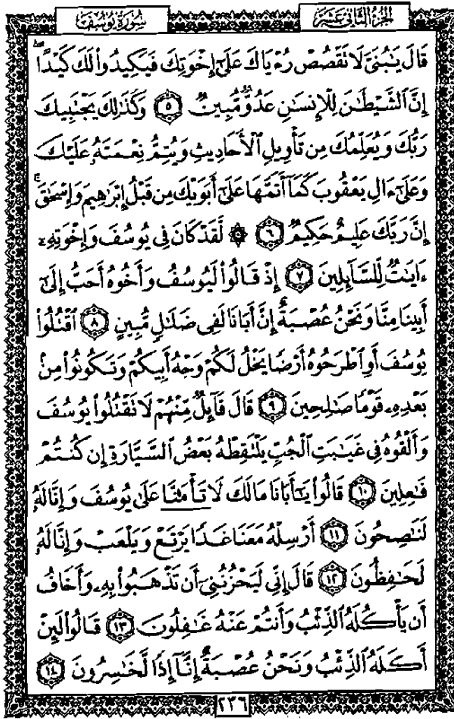 الجزء الثاني عشر
سورة يوسف
قَالَ يَٰبُنَىَّ لَا تَقْصُصْ رُءْيَاكَ عَلَىٰٓ إِخْوَتِكَ فَيَكِيدُوا۟ لَكَ كَيْدًا ۖ
إِنَّ ٱلشَّيْطَٰنَ لِلْإِنسَٰنِ عَدُوٌّ مُّبِينٌ ۝٥ وَكَذَٰلِكَ يَجْتَبِيكَ
رَبُّكَ وَيُعَلِّمُكَ مِن تَأْوِيلِ ٱلْأَحَادِيثِ وَيُتِمُّ نِعْمَتَهُۥ عَلَيْكَ
وَعَلَىٰٓ ءَالِ يَعْقُوبَ كَمَآ أَتَمَّهَا عَلَىٰٓ أَبَوَيْكَ مِن قَبْلُ إِبْرَٰهِيمَ وَإِسْحَٰقَ ۚ
إِنَّ رَبَّكَ عَلِيمٌ حَكِيمٌ ۝٦ ۞ لَّقَدْ كَانَ فِى يُوسُفَ وَإِخْوَتِهِۦٓ
ءَايَٰتٌ لِّلسَّآئِلِينَ ۝٧ إِذْ قَالُوا۟ لَيُوسُفُ وَأَخُوهُ أَحَبُّ إِلَىٰٓ
أَبِينَا مِنَّا وَنَحْنُ عُصْبَةٌ إِنَّ أَبَانَا لَفِى ضَلَٰلٍ مُّبِينٍ ۝٨ ٱقْتُلُوا۟
يُوسُفَ أَوِ ٱطْرَحُوهُ أَرْضًا يَخْلُ لَكُمْ وَجْهُ أَبِيكُمْ وَتَكُونُوا۟ مِنۢ
بَعْدِهِۦ قَوْمًا صَٰلِحِينَ ۝٩ قَالَ قَآئِلٌ مِّنْهُمْ لَا تَقْتُلُوا۟ يُوسُفَ
وَأَلْقُوهُ فِى غَيَٰبَتِ ٱلْجُبِّ يَلْتَقِطْهُ بَعْضُ ٱلسَّيَّارَةِ إِن كُنتُمْ
فَٰعِلِينَ ۝١٠ قَالُوا۟ يَٰٓأَبَانَا مَا لَكَ لَا تَأْمَ۫نَّا عَلَىٰ يُوسُفَ وَإِنَّا لَهُۥ
لَنَٰصِحُونَ ۝١١ أَرْسِلْهُ مَعَنَا غَدًا يَرْتَعْ وَيَلْعَبْ وَإِنَّا لَهُۥ
لَحَٰفِظُونَ ۝١٢ قَالَ إِنِّى لَيَحْزُنُنِىٓ أَن تَذْهَبُوا۟ بِهِۦ وَأَخَافُ
أَن يَأْكُلَهُ ٱلذِّئْبُ وَأَنتُمْ عَنْهُ غَٰفِلُونَ ۝١٣ قَالُوا۟ لَئِنْ
أَكَلَهُ ٱلذِّئْبُ وَنَحْنُ عُصْبَةٌ إِنَّآ إِذًا لَّخَٰسِرُونَ ۝١٤
٢٣٦